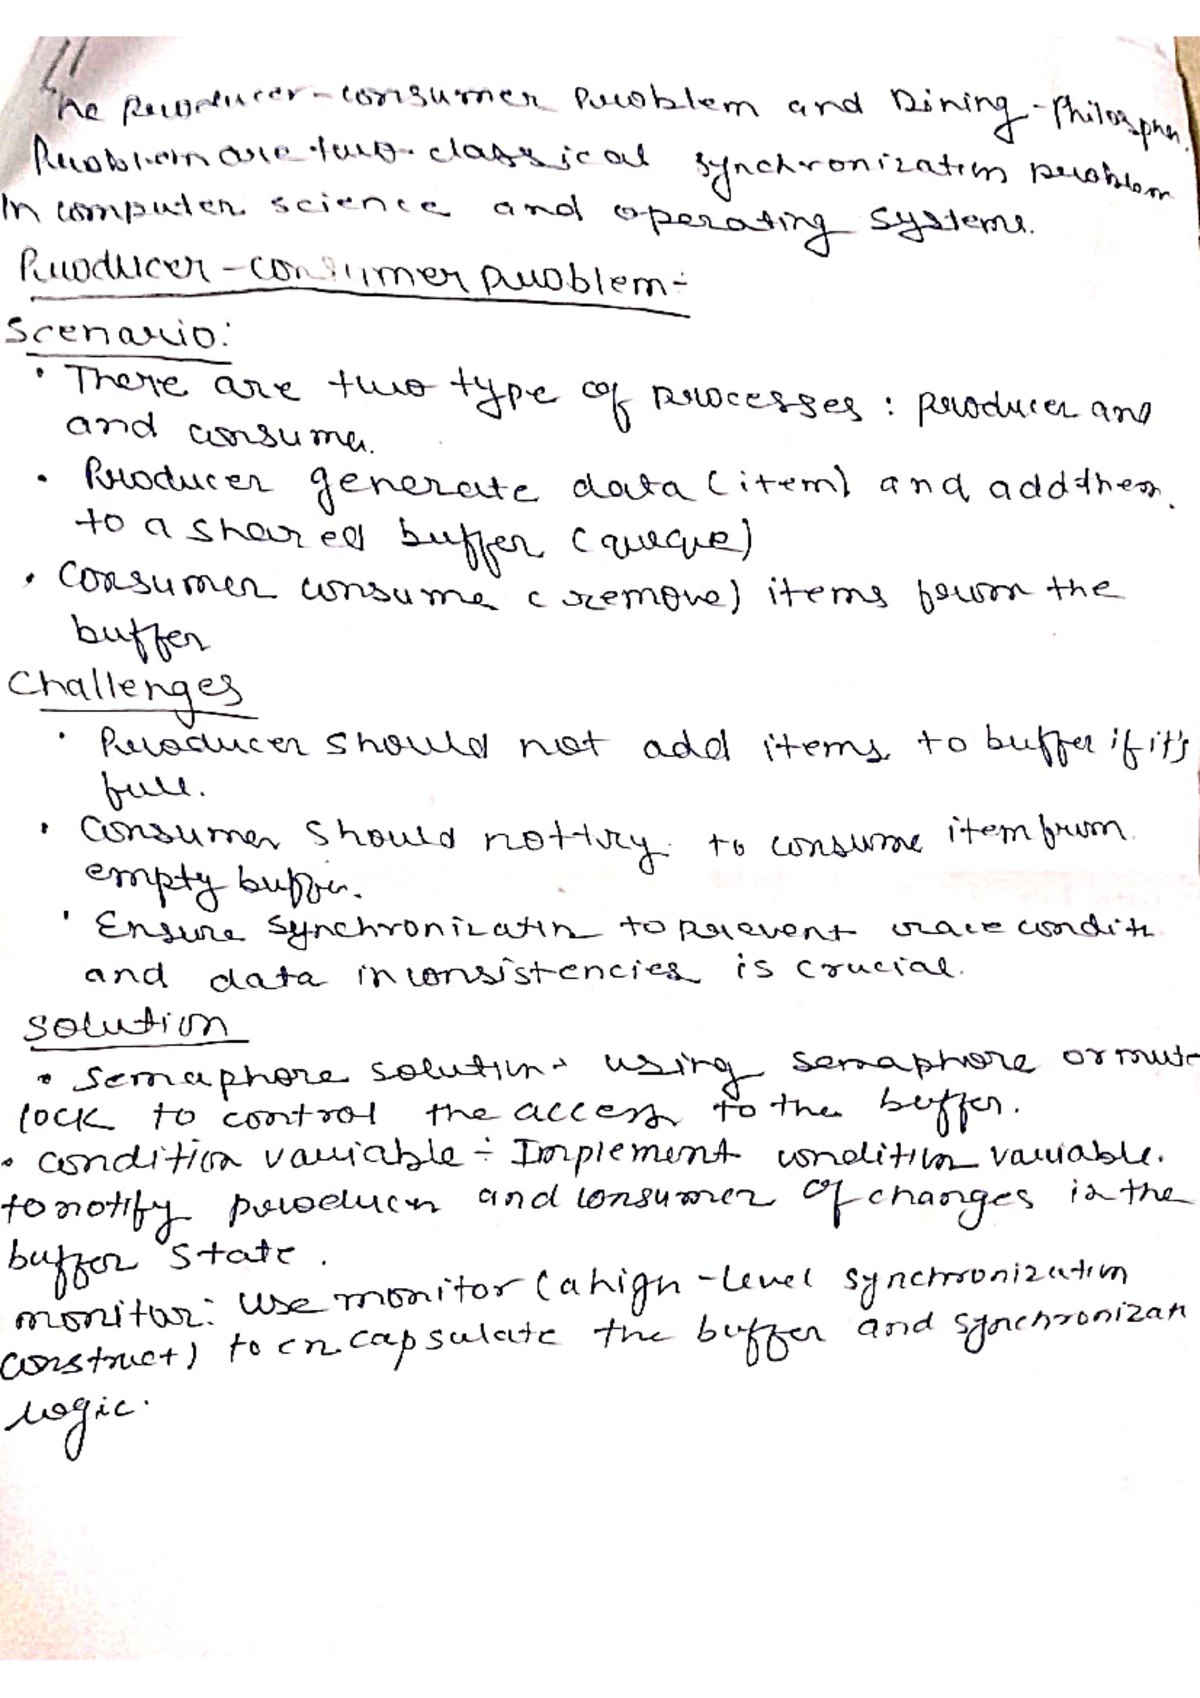 The Producer-consumer Problem and Dining-Philospher
Problem are two classical synchronization problem
In computer science and operating systems.
Producer-consumer problem:-
Scenario:
• There are two type of processes: producer and
and consumer.
• Producer generate data (item) and add them
to a shared buffer (queue)
• Consumer consume (remove) items from the
buffer
Challenges
• Producer should not add items to buffer if it's
full.
• Consumer should not try to consume item from
empty buffer.
• Ensure synchronization to prevent race conditn
and data inconsistencies is crucial.
Solution
• Semaphore solution: using semaphore or mute
lock to control the access to the buffer.
• condition variable:- Implement condition variable.
to notify producer and consumer of changes in the
buffer state.
monitor: Use monitor (a high-level synchronization
construct) to encapsulate the buffer and synchronizan
logic.